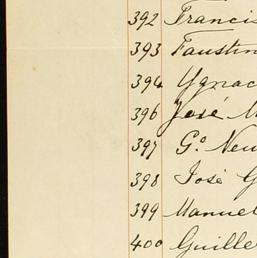 392 Francis
393 Faustin
394 Ygnac
396 José M
397 G.º New
398 José G
399 Manuel
400 Guille